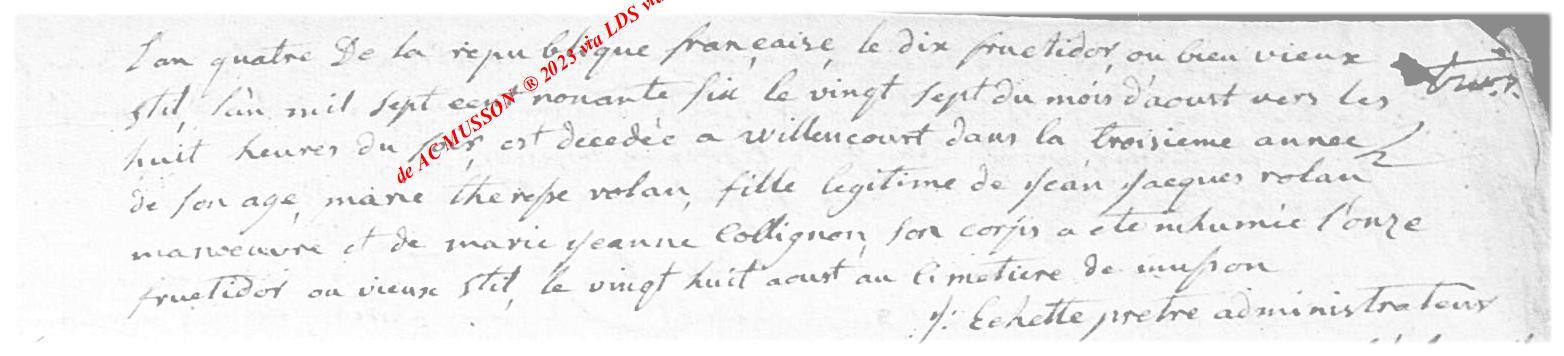 L'an quatre De la republique françaaise, le dix fructidor, ou bien vieux
stil, l'an mil sept cent nonante six le vingt sept du mois d'aoust vers les
huit heures du soir, est decedée a Willencourt dans la troisieme année
de son age, marie therese rolan, fille legitime de jean jacques rolan
manoeuvre et de marie jeanne Collignon, son corps a ete inhumée l'onze
fructidor ou vieux stil, le vingt huit aoust au cimetiere de musson
j: Echette pretre administrateur
de ACMUSSON ® 2023 via LDS via